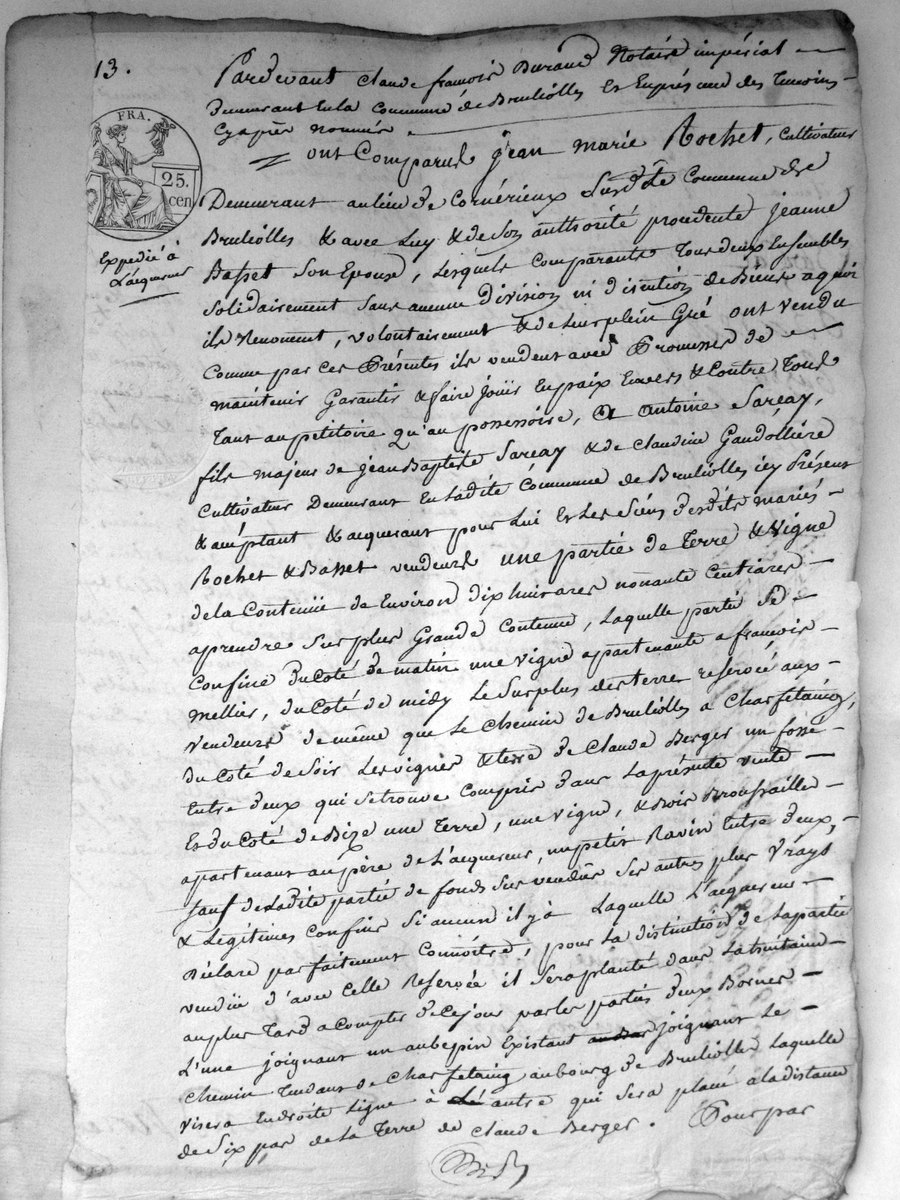 13.
FRA.
25.
cen
Expedié à
L'acquereur
Pardevant Claude francois Durand Notaire impérial
Demeurant En la Commune de Bruliolles Et En présence des Temoins
Cyaprès nommés
ont Comparus jean marie Rochet, Cultivateur
Demeurant au lieu de Cornérieux Susdite Commune de
Bruliolles & avec Luy & de Son authorité procedente jeanne
Basset Son Epouse, Lesquels Comparants Tous deux Ensembles
Solidairement Sans aucune Division ni discution de Biens a quoi
ils Renoncent, volontairement & de Leur plein Gré ont vendu
Comme par ces Présentes ils vendent avec Promesses de
maintenir Garantir & faire jouir En paix Envers & Contre Tous
Tant au petitoire qu'au possessoire, A Antoine Sarçay,
fils majeur de jean Baptiste Sarçay & de Claudine Gaudollière
Cultivateur Demeurant En Ladite Commune de Bruliolles icy Présent
& acceptant & acquerant pour Lui Et Les Siens desdits mariés
Rochet & Basset vendeurs une partie de Terre & Vigne
de la Contenue de Environ dix huit ares nonante Centiares
aprendre Sur plus Grande Contenue, Laquelle partie Se
Confine Du Coté de matin une vigne apartenante a francois
mellier, du Coté de midy Le Surplus des terres reservée aux
vendeurs de même que Le Chemin de Brulliolles a Charfetaing,
du Coté de Soir Les vignes & terre de Claude Berger un fossé
Entre deux qui Se trouve Compris dans La présente vente
Et du Coté de Bize une Terre, une vigne, & Bois Broussaille
apartenant au père de L'acquereur, un petit Ravin Entre deux,
Sauf de Ladite partie de fonds Sus vendue Ses autres plus Vrays
& Legitimes Confins Si aucun il y à Laquelle L'acquereur
Déclare parfaitement Connoitre, pour La distinction de La partie
vendüe d'avec Celle Reservée il Sera planté dans La huitaine
au plus Tard a Compter de Ce jour par les parties deux Bornes
L'une joignant un aubepin Existant joignant Le
Chemin Tendant de Charfetaing au bourg de Brulliolles Laquelle
visera En droite Ligne à autre qui Sera placé a la distance
de Six pas de La Terre de Claude Berger. Pour par